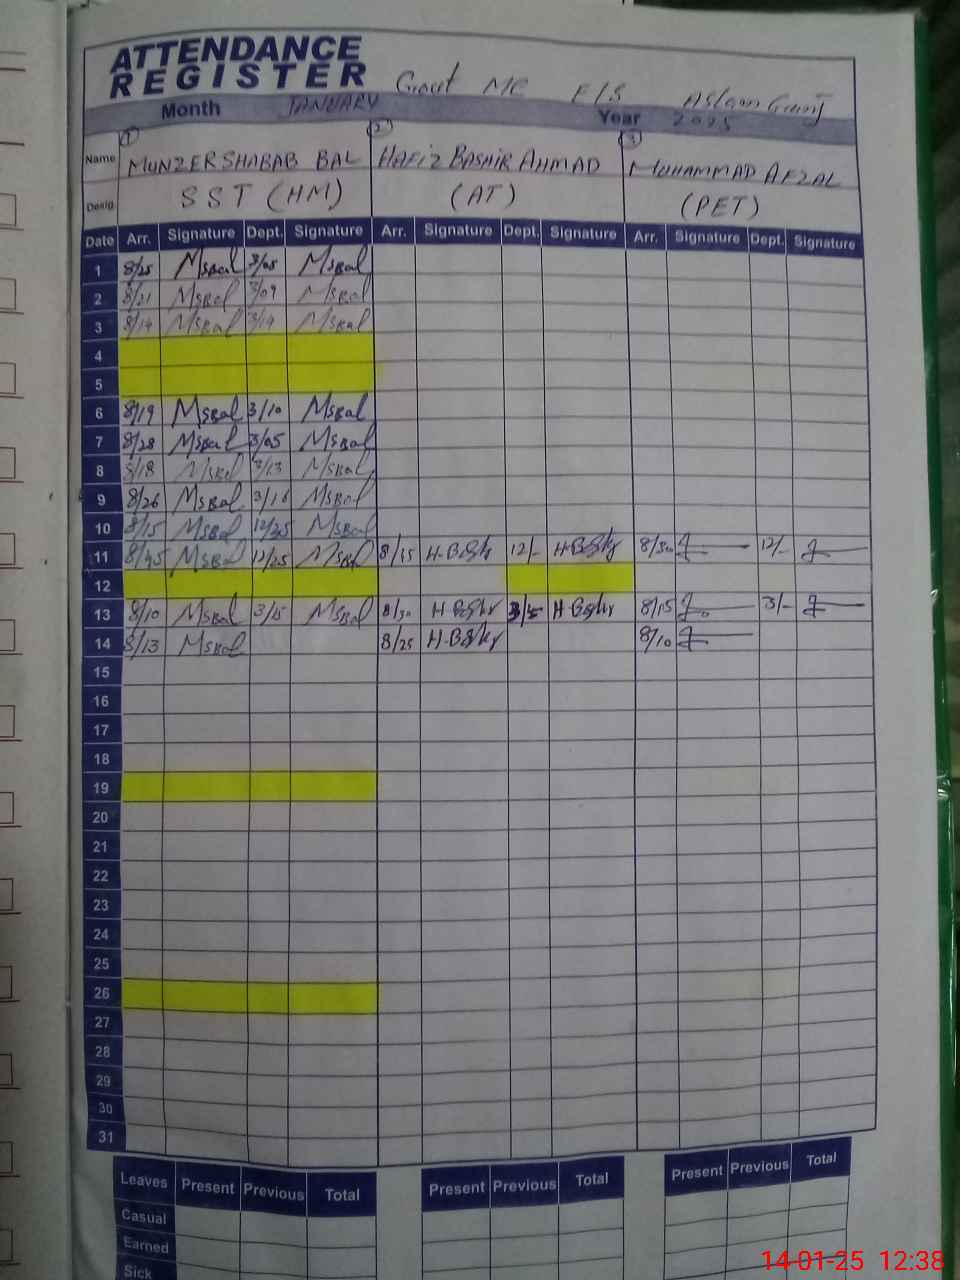 ATTENDANCE
REGISTER
Govt MC E/S Aslam Gunj
Month JANUARY Year 2025
1 2 3
Name MUNZER SHABAB BAL HAFIZ BASHIR AHMAD MUHAMMAD AFZAL
Desig. SST (HM) (AT) (PET)
Date Arr. Signature Dept. Signature Arr. Signature Dept. Signature Arr. Signature Dept. Signature
1 8/25 MSBal 3/05 MSBal
2 8/21 MSBal 3/09 MSBal
3 8/14 MSBal 3/14 MSBal
4
5
6 8/19 MSBal 3/10 MSBal
7 8/28 MSBal 3/05 MSBal
8 8/18 MSBal 3/13 MSBal
9 8/26 MSBal 3/16 MSBal
10 8/15 MSBal 12/35 MSBal
11 8/45 MSBal 12/25 MSBal 8/35 12/- 8/30 12/-
12
13 8/10 MSBal 3/5 MSBal 8/30 8/15 3/-
14 8/13 MSBal 8/25 8/10
15
16
17
18
19
20
21
22
23
24
25
26
27
28
29
30
31
Leaves Present Previous Total Present Previous Total Present Previous Total
Casual
Earned
Sick
14-01-25 12:38